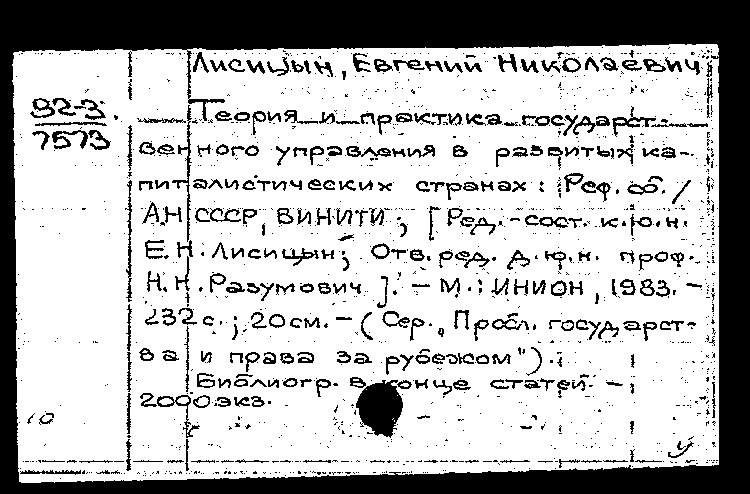 Лисицын, Евгений Николаевич
92-3
7573
Теория и практика государст-
венного управления в развитых ка-
питалистических странах: Реф. сб. /
АН СССР, ВИНИТИ; [Ред.-сост. к.ю.н.
Е.Н. Лисицын; Отв. ред. д.ю.н. проф.
Н.Н. Разумович]. - М.: ИНИОН, 1983. -
232 с.; 20 см. - (Сер. "Пробл. государст-
ва и права за рубежом").
Библиогр. в конце статей. -
2000 экз.
10
У